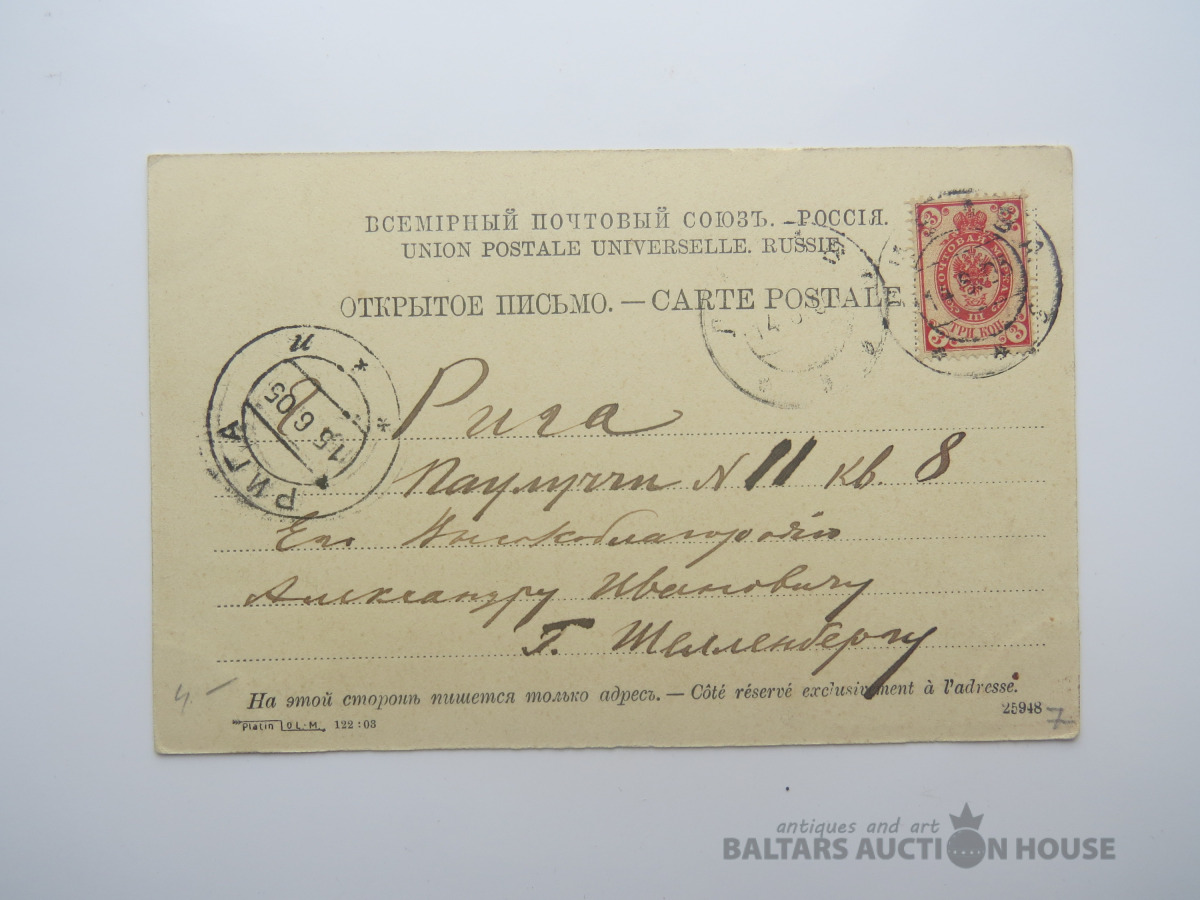 ВСЕМІРНЫЙ ПОЧТОВЫЙ СОЮЗЪ. – РОССІЯ.
UNION POSTALE UNIVERSELLE. RUSSIE
ОТКРЫТОЕ ПИСЬМО. — CARTE POSTALE
3 3
ПОЧТОВАЯ МАРКА
III
ТРИ КОП.
3 3
РИГА
15 6 05
Рига
Паулуччи N 11 кв. 8
Его Высокоблагородію
Александру Ивановичу
Г. Шелленбергу
На этой сторонѣ пишется только адресъ. — Côté réservé exclusivement à l'adresse.
Platin O.L.M. 122:03
25948
7
4 –
antiques and art
BALTARS AUCTION HOUSE